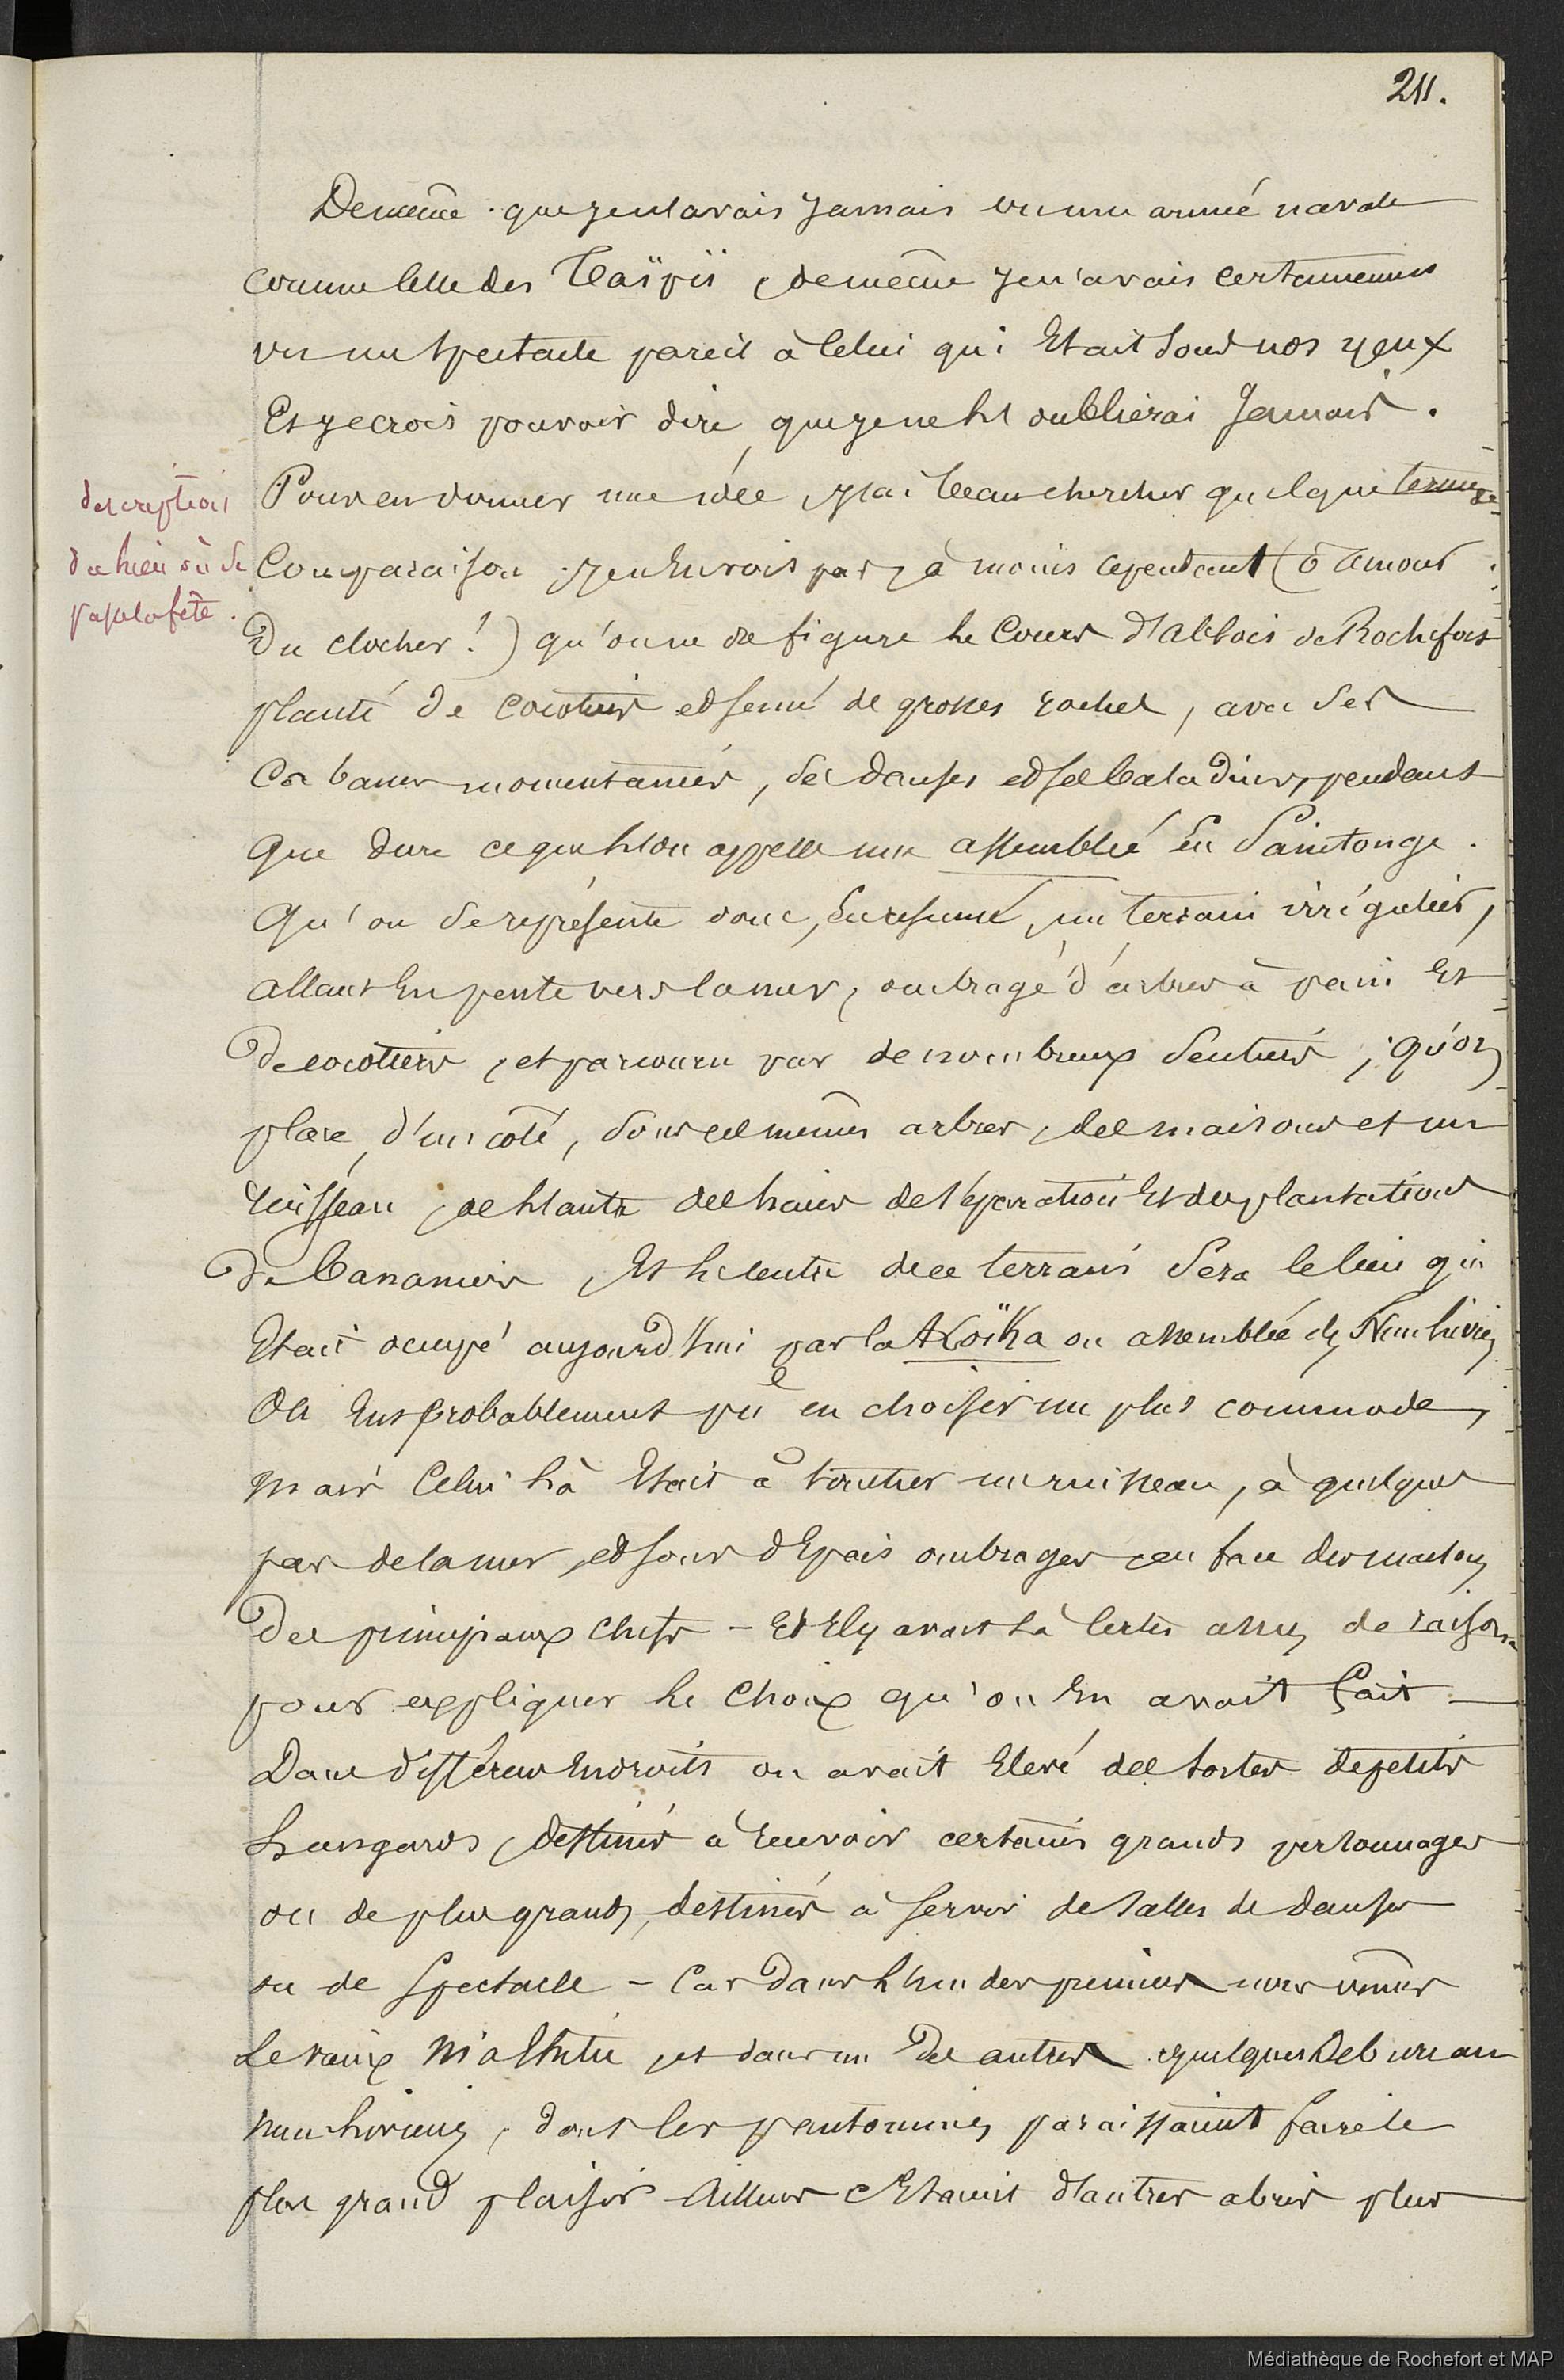 211.
De même que je n'avais jamais vu une armée navale
comme celle des Taïpii, de même je n'avais certainement
vu un spectacle pareil à celui qui était sous nos yeux
Et je crois pouvoir dire que je ne l'oublierai jamais.
Pour en donner une idée, j'ai beau chercher quelque terme de
comparaison je n'en vois pas, à moins cependant (ô amour
du clocher!) qu'on ne se figure le Cours d'Ablois de Rochefort
planté de cocotiers et semé de grosses roches, avec ses
cabanes momentanées, ses danses et ses baladins, pendant
que dure ce que l'on appelle une assemblée en Saintonge.
Qu'on se représente donc, en résumé, un terrain irrégulier,
allant en pente vers la mer, ombragé d'arbres à pain et
de cocotiers, et parcouru par de nombreux sentiers; qu'on
place, d'un côté, sous ces mêmes arbres, des maisons et un
ruisseau, de l'autre des haies de séparation et des plantations
de bananiers, et le centre de ce terrain sera le lieu qui
était occupé aujourd'hui par la Koïka ou assemblée des Nuuhiviens
On eut probablement pu en choisir un plus commode,
mais celui là était à toucher un ruisseau, à quelques
pas de la mer, et sous d'épais ombrages, en face des maisons
des principaux chefs – Et il y avait là certes assez de raisons
pour expliquer le choix qu'on en avait fait –
Dans différents endroits on avait élevé des sortes de petits
hangards, destinés à recevoir certains grands personnages
ou de plus grands, destinés à servir de salles de danses
ou de spectacle – Car dans l'un des premiers nous vîmes
le vaix et dans un des autres quelques Debureau
nuuhiviens, dont les pantomimes paraissaient faire le
plus grand plaisir – Ailleurs c'étaient d'autres abris plus
description
du lieu où se
passe la fête.
Médiathèque de Rochefort et MAP